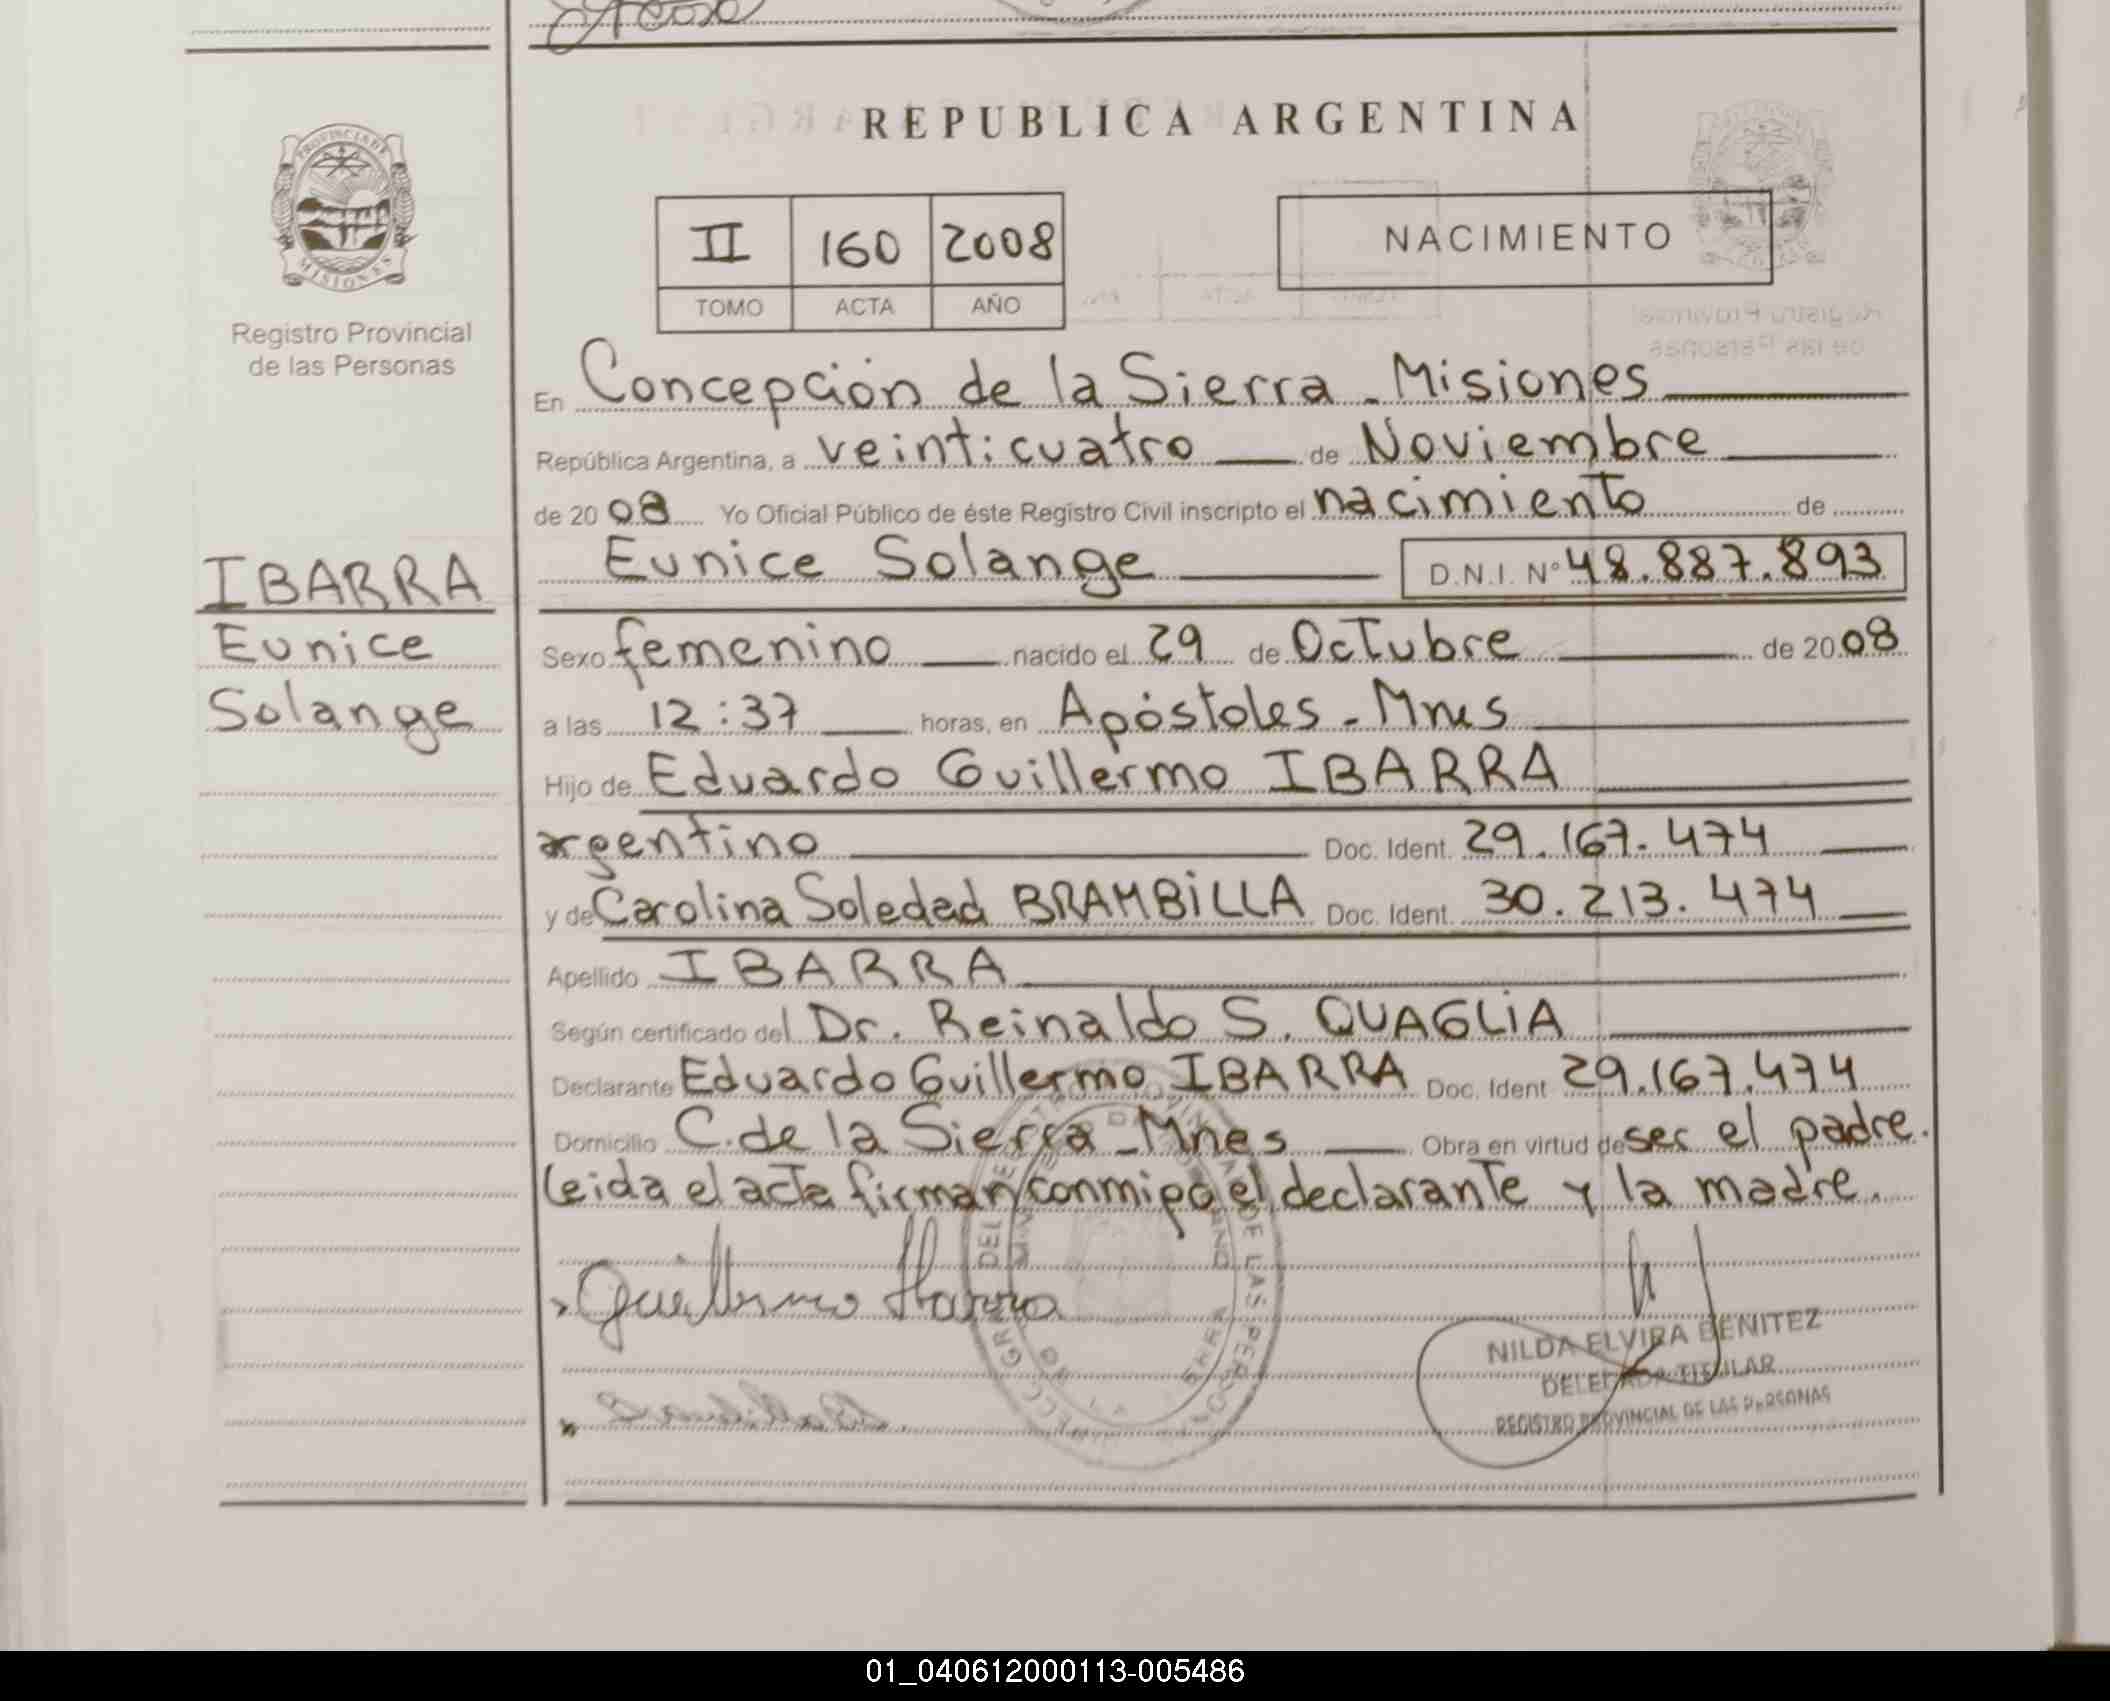 REPUBLICA ARGENTINA
PROVINCIA DE
MISIONES
Registro Provincial
de las Personas
II 160 2008
TOMO ACTA AÑO
NACIMIENTO
En Concepción de la Sierra - Misiones
República Argentina, a veinticuatro de Noviembre
de 20 08 Yo Oficial Público de éste Registro Civil inscripto el nacimiento de
Eunice Solange D.N.I. Nº 48.887.893
IBARRA
Eunice
Solange
Sexo femenino nacido el 29 de Octubre de 20 08
a las 12:37 horas, en Apóstoles - Mnes
Hijo de Eduardo Guillermo IBARRA
argentino Doc. Ident. 29.167.474
y de Carolina Soledad BRAMBiLLA Doc. Ident. 30.213.474
Apellido IBARRA
Según certificado del Dr. Reinaldo S. QUAGLiA
Declarante Eduardo Guillermo IBARRA Doc. Ident 29.167.474
Domicilio C. de la Sierra - Mnes Obra en virtud de ser el padre.
Leida el acta firman conmigo el declarante y la madre.
Guillermo Ibarra
NILDA ELVIRA BENITEZ
DELEGADA TITULAR
REGISTRO PROVINCIAL DE LAS PERSONAS
01_040612000113-005486